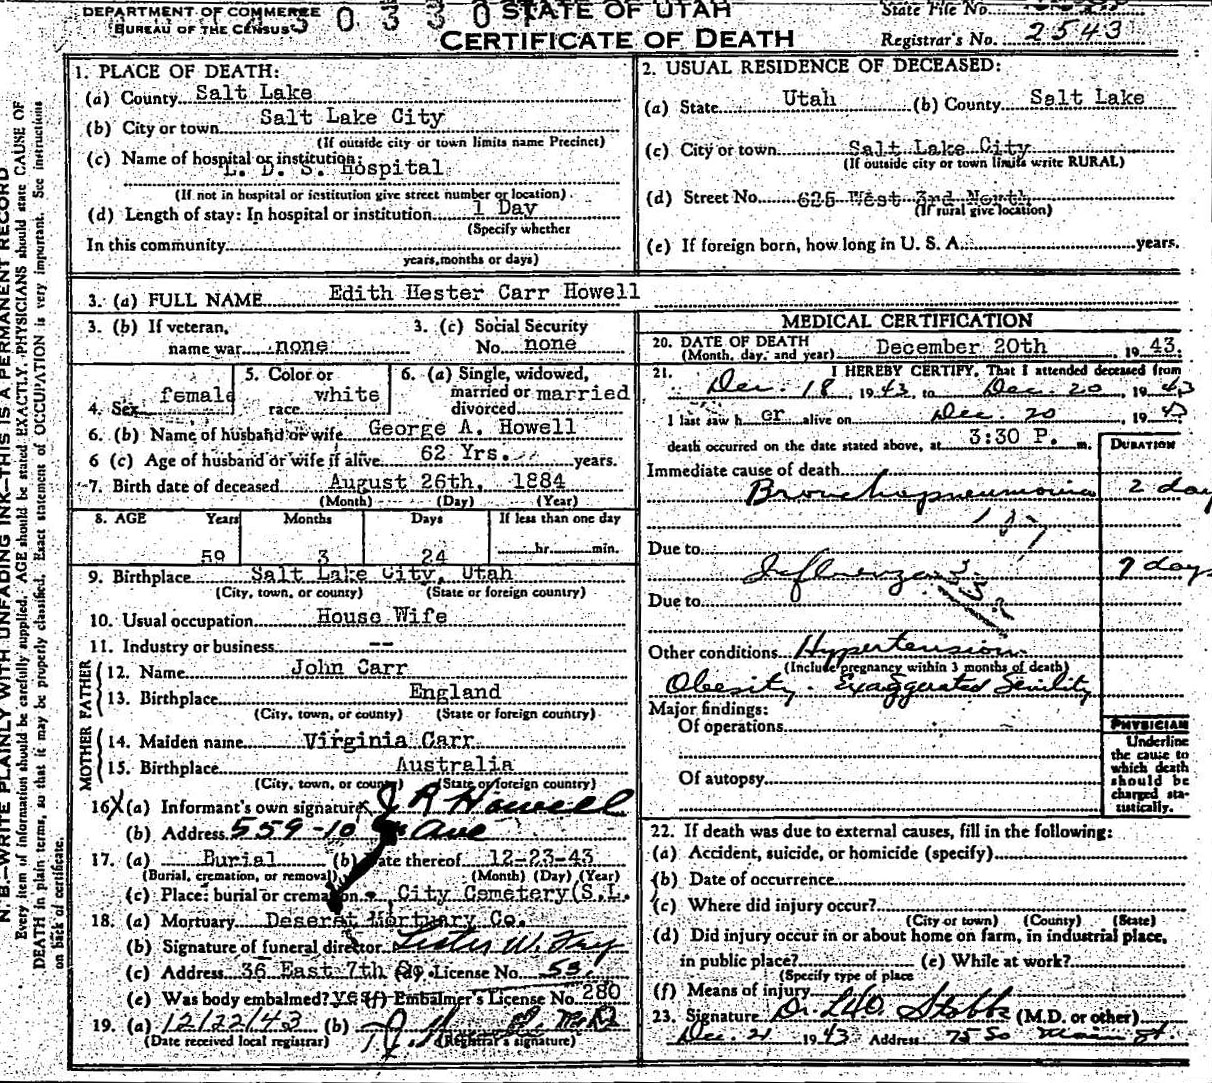 DEPARTMENT OF COMMERCE
BUREAU OF THE CENSUS
STATE OF UTAH
CERTIFICATE OF DEATH
State File No.
Registrar's No. 2543
N. B.—WRITE PLAINLY WITH UNFADING INK—THIS IS A PERMANENT RECORD
Every item of information should be carefully supplied. AGE should be stated EXACTLY. PHYSICIANS should state CAUSE OF
DEATH in plain terms, so that it may be properly classified. Exact statement of OCCUPATION is very important. See instructions
on back of certificate.
1. PLACE OF DEATH:
(a) County Salt Lake
(b) City or town Salt Lake City
(If outside city or town limits name Precinct)
(c) Name of hospital or institution:
L. D. S. Hospital
(If not in hospital or institution give street number or location)
(d) Length of stay: In hospital or institution 1 Day
(Specify whether
In this community
years, months or days)
2. USUAL RESIDENCE OF DECEASED:
(a) State Utah (b) County Salt Lake
(c) City or town Salt Lake City
(If outside city or town limits write RURAL)
(d) Street No. 625 West 3rd North
(If rural give location)
(e) If foreign born, how long in U. S. A. years.
3. (a) FULL NAME Edith Hester Carr Howell
3. (b) If veteran, name war none
3. (c) Social Security No. none
4. Sex female
5. Color or race white
6. (a) Single, widowed, married or divorced married
6. (b) Name of husband or wife George A. Howell
6 (c) Age of husband or wife if alive 62 Yrs. years.
7. Birth date of deceased August 26th, 1884
(Month) (Day) (Year)
8. AGE Years Months Days If less than one day
59 3 24 hr. min.
9. Birthplace Salt Lake City, Utah
(City, town, or county) (State or foreign country)
10. Usual occupation House Wife
11. Industry or business --
FATHER
12. Name John Carr
13. Birthplace England
(City, town, or county) (State or foreign country)
MOTHER
14. Maiden name Virginia Carr
15. Birthplace Australia
(City, town, or county) (State or foreign country)
16 X (a) Informant's own signature J A Howell
(b) Address 559-10 Ave
17. (a) Burial (b) Date thereof 12-23-43
(Burial, cremation, or removal) (Month) (Day) (Year)
(c) Place: burial or cremation City Cemetery(S.L.
18. (a) Mortuary Deseret Mortuary Co.
(b) Signature of funeral director Lester W.
(c) Address 36 East 7th So. (d) License No. 53
(e) Was body embalmed? yes (f) Embalmer's License No. 280
19. (a) 12/22/43 (b)
(Date received local registrar) (Registrar's signature)
MEDICAL CERTIFICATION
20. DATE OF DEATH
(Month, day, and year) December 20th, 1943.
21. I HEREBY CERTIFY, That I attended deceased from
Dec. 18, 1943, to Dec. 20, 1943
I last saw h er alive on Dec. 20, 1943
death occurred on the date stated above, at 3:30 P. m.
DURATION
Immediate cause of death
Bronchopneumonia 2 day
107
Due to
Influenza 7 days
Due to
Other conditions Hypertension
(Include pregnancy within 3 months of death)
Obesity. Exaggerated Senility
Major findings:
Of operations
Of autopsy
PHYSICIAN
Underline
the cause to
which death
should be
charged sta-
tistically.
22. If death was due to external causes, fill in the following:
(a) Accident, suicide, or homicide (specify)
(b) Date of occurrence
(c) Where did injury occur?
(City or town) (County) (State)
(d) Did injury occur in or about home on farm, in industrial place,
in public place? (e) While at work?
(Specify type of place
(f) Means of injury
23. Signature Dr. (M.D. or other)
Dec. 21 1943 Address 75 So Main St.